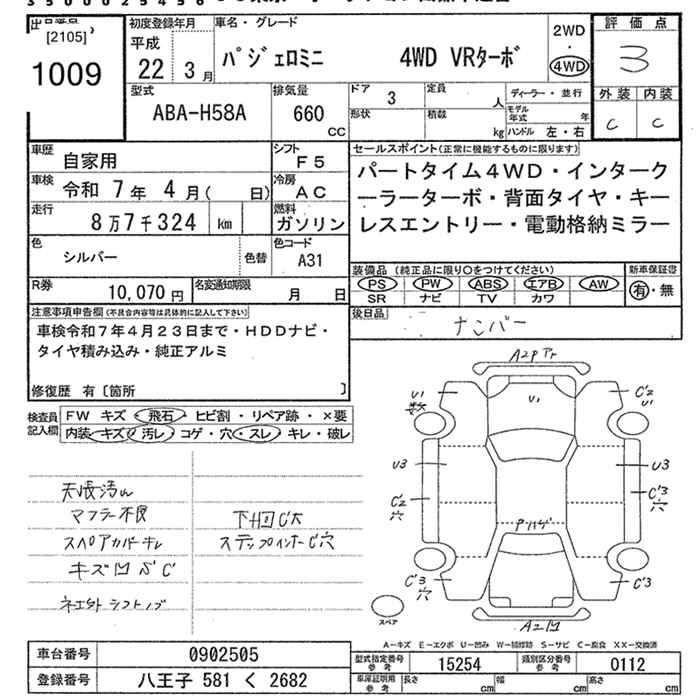 3 5 0 0 0 2 5 4 5 6
出品番号
[2105]
1009
初度登録年月
平成
22年 3月
車名・グレード
パジェロミニ 4WD VRターボ
2WD
・
4WD
評価点
3
外装 内装
C C
型式
ABA-H58A
排気量
660
CC
ドア
3
定員
人
形状
積載
kg
ディーラー・並行
モデル年式 年
ハンドル 左・右
車歴
自家用
シフト
F5
車検
令和 7年 4月( 日)
冷房
AC
走行
8万7千324 km
燃料
ガソリン
色
シルバー
色替
色コード
A31
R券
10,070円
名変通知期限
月 日
セールスポイント(正常に機能するものに限ります)
パートタイム4WD・インターク
ーラーターボ・背面タイヤ・キー
レスエントリー・電動格納ミラー
装備品(純正品に限り○をつけてください)
PS PW ABS エアB AW
SR ナビ TV カワ
新車保証書
有・無
後日品
ナンバー
注意事項申告欄(不具合内容等は具体的に記入して下さい)
車検令和7年4月23日まで・HDDナビ・
タイヤ積み込み・純正アルミ
修復歴 有〔箇所 〕
検査員記入欄
FW キズ・飛石・ヒビ割・リペア跡・×要
内装・キズ・汚レ・コゲ・穴・スレ・キレ・破レ
天張汚れ
マフラー不良
スペアカバーキレ
キズ凹 C
シフトノブ
下凹C大
ステップインナーC穴
A2
U1
U1
C2
U1
U3
U3
C2
穴
C3
穴
C3
穴
C3
スペア
A2凹
A―キズ E―エクボ U―凹み W―補修跡 S―サビ C―腐食 XX―交換済
車台番号
0902505
登録番号
八王子 581 く 2682
型式指定番号
参考
15254
類別区分番号
参考
0112
車庫証明用
参考
長さ
cm
幅
cm
高さ
cm